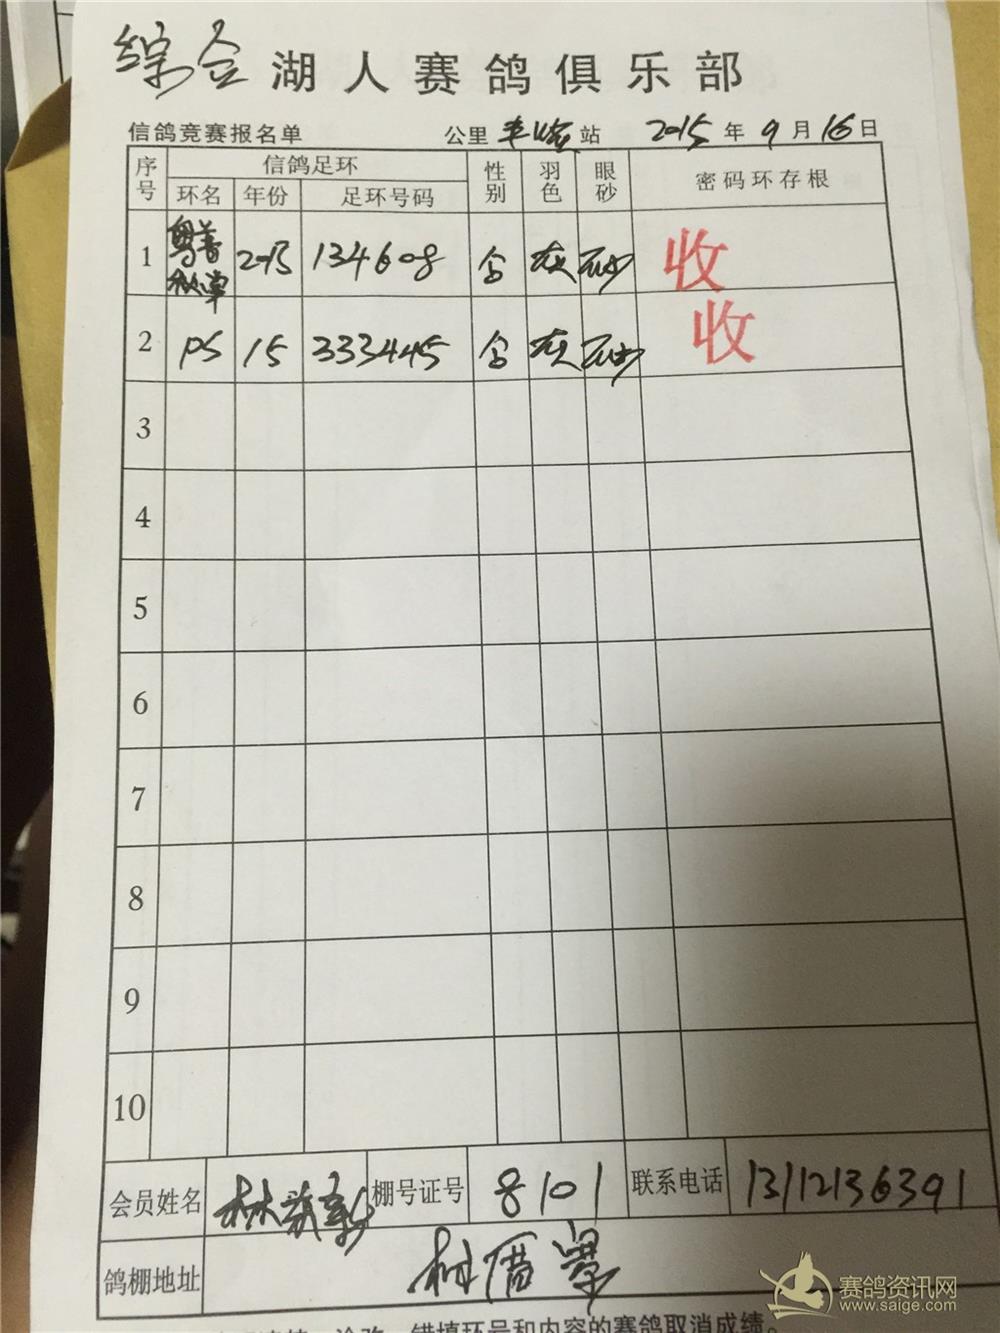 综合 湖人赛鸽俱乐部
信鸽竞赛报名单 公里 站 2015年9月16日
序号 信鸽足环 性别 羽色 眼砂 密码环存根
环名 年份 足环号码
1 粤普 2015 134608 灰 砂 收
2 PS 15 333445 灰 砂 收
3
4
5
6
7
8
9
10
会员姓名 林 棚号证号 8101 联系电话 13112136391
鸽棚地址
错填环号和内容的赛鸽取消成绩。
赛鸽资讯网
www.saige.com